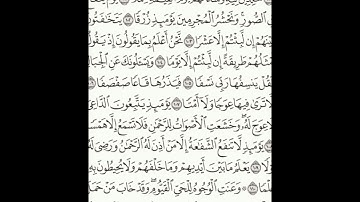 ٱلصُّورِ وَنَحْشُرُ ٱلْمُجْرِمِينَ يَوْمَئِذٍ زُرْقًا ١٠٢ يَتَخَٰفَتُونَ
بَيْنَهُمْ إِن لَّبِثْتُمْ إِلَّا عَشْرًا ١٠٣ نَّحْنُ أَعْلَمُ بِمَا يَقُولُونَ إِذْ يَقُولُ
طَرِيقَةً إِن لَّبِثْتُمْ إِلَّا يَوْمًا ١٠٤ وَيَسْـَٔلُونَكَ عَنِ ٱلْجِبَالِ
فَقُلْ يَنسِفُهَا رَبِّى نَسْفًا ١٠٥ فَيَذَرُهَا قَاعًا صَفْصَفًا ١٠٦
تَرَىٰ فِيهَا عِوَجًا وَلَآ أَمْتًا ١٠٧ يَوْمَئِذٍ يَتَّبِعُونَ ٱلدَّاعِىَ
عِوَجَ لَهُۥ وَخَشَعَتِ ٱلْأَصْوَاتُ لِلرَّحْمَٰنِ فَلَا تَسْمَعُ إِلَّا هَمْسًا
يَوْمَئِذٍ لَّا تَنفَعُ ٱلشَّفَٰعَةُ إِلَّا مَنْ أَذِنَ لَهُ ٱلرَّحْمَٰنُ وَرَضِىَ لَهُۥ
يَعْلَمُ مَا بَيْنَ أَيْدِيهِمْ وَمَا خَلْفَهُمْ وَلَا يُحِيطُونَ بِهِۦ
عِلْمًا ١١٠ وَعَنَتِ ٱلْوُجُوهُ لِلْحَىِّ ٱلْقَيُّومِ وَقَدْ خَابَ مَنْ حَمَلَ